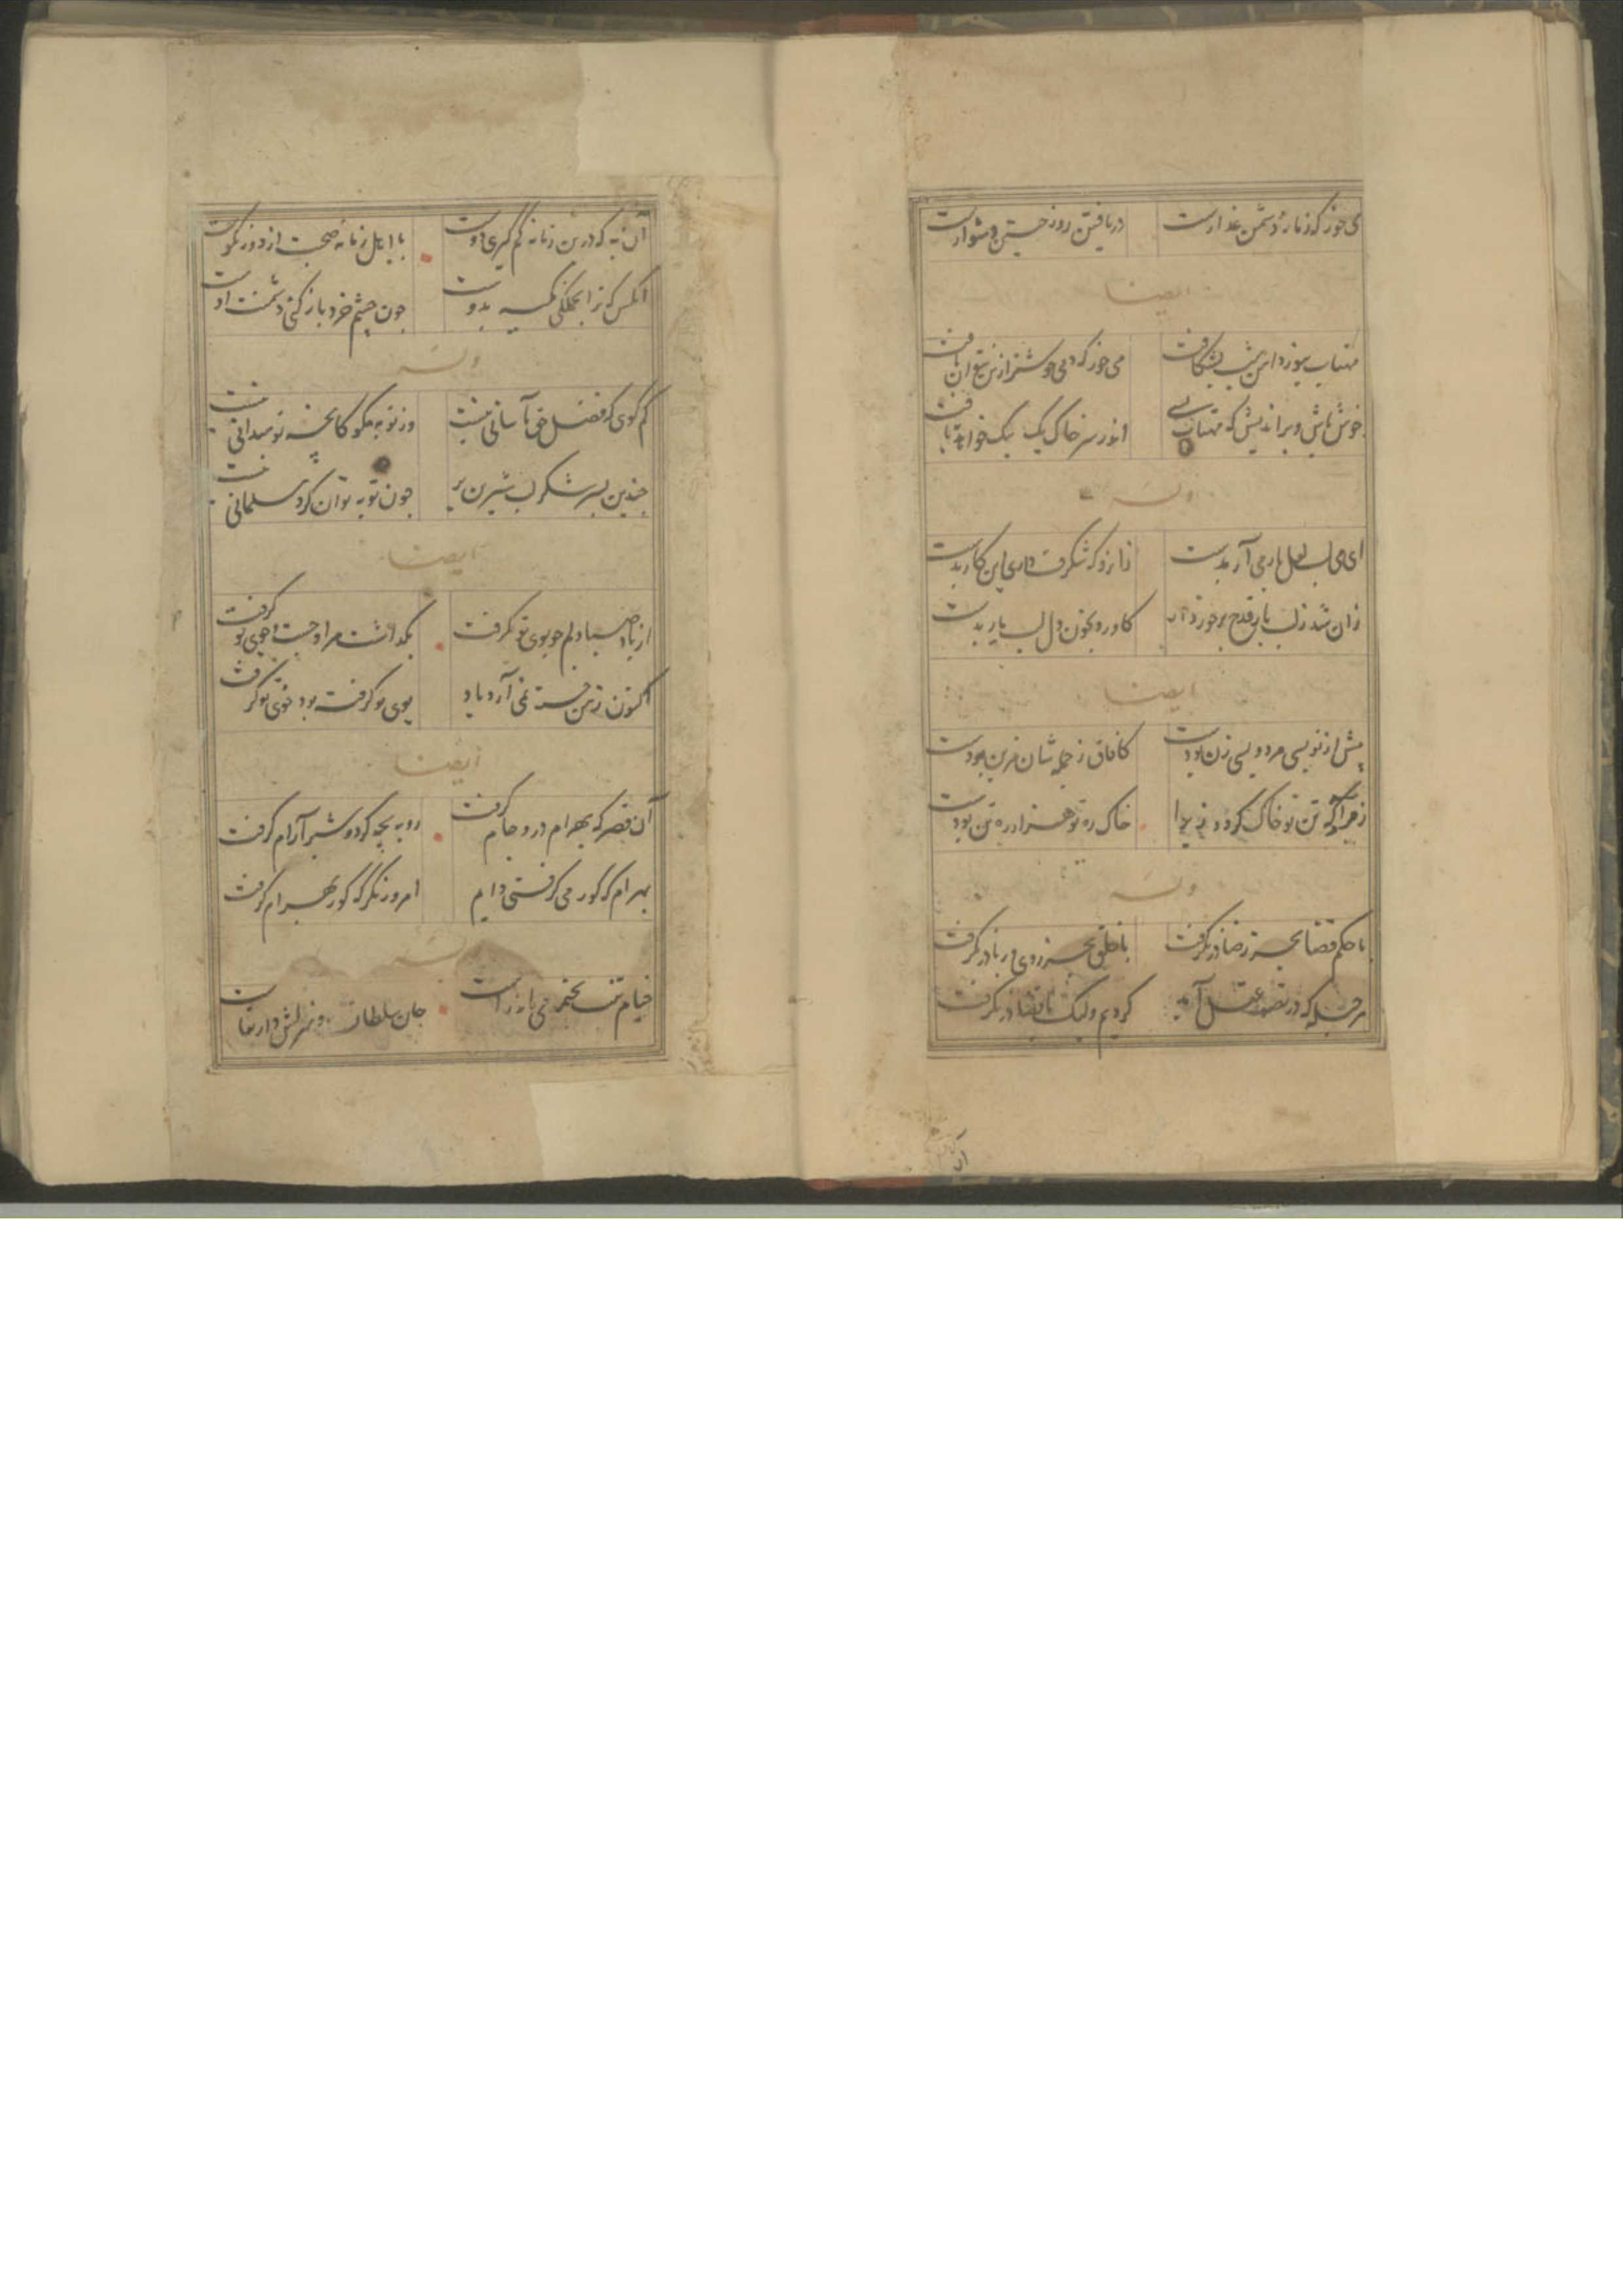 می خور که زمانه دشمن غدارست دریافتن روز چنین دشوارست
ایضا
مهتاب بنور دامن شب بشکافت می خور که دمی خوشتر ازین نتوان یافت
خوش باش و براندیش که مهتاب بسی اندر سر خاک یک بیک خواهد تافت
وله
ای دل لب لعل یار می آر بدست
زان شد ز لب یار قدح برخوردار کاورد بخون دل لب یار بدست
ایضا
پیش از تو بسی مرد و بسی زن بودست کافاق ز جمله شان مزین بودست
تن تو خاک گردد خاک ره تو هزار ره تن بودست
وله
با حکم قضا بجز رضا درنگرفت با خلق بجز روی و ریا درنگرفت
هر حیله که در تصور عقل آید کردیم ولیک با قضا درنگرفت
آن به
آن به که درین زمانه کم گیری دوست با اهل زمانه صحبت از دور نکوست
آنکس که ترا بجملگی تکیه بدوست چون چشم خرد باز کنی دشمنت اوست
وله
کم گوی که فضل حق بآسانی نیست وز توبه مگو
چندین پسر شکر لب شیرین بر چون توبه توان کرد مسلمانی نیست
ایضا
از باد صبا دلم چو بوی تو گرفت بگذاشت مرا و جست و جوی تو گرفت
اکنون ز منش نمی آرد یاد بوی تو گرفته بود خوی تو گرفت
ایضا
آن قصر که بهرام درو جام گرفت روبه بچه کرد و شیر آرام گرفت
بهرام که گور می گرفتی دایم امروز نگر که گور بهرام گرفت
وله
خیام تنت بخیمه می ماند راست جان سلطان و منزلش دار بقاست